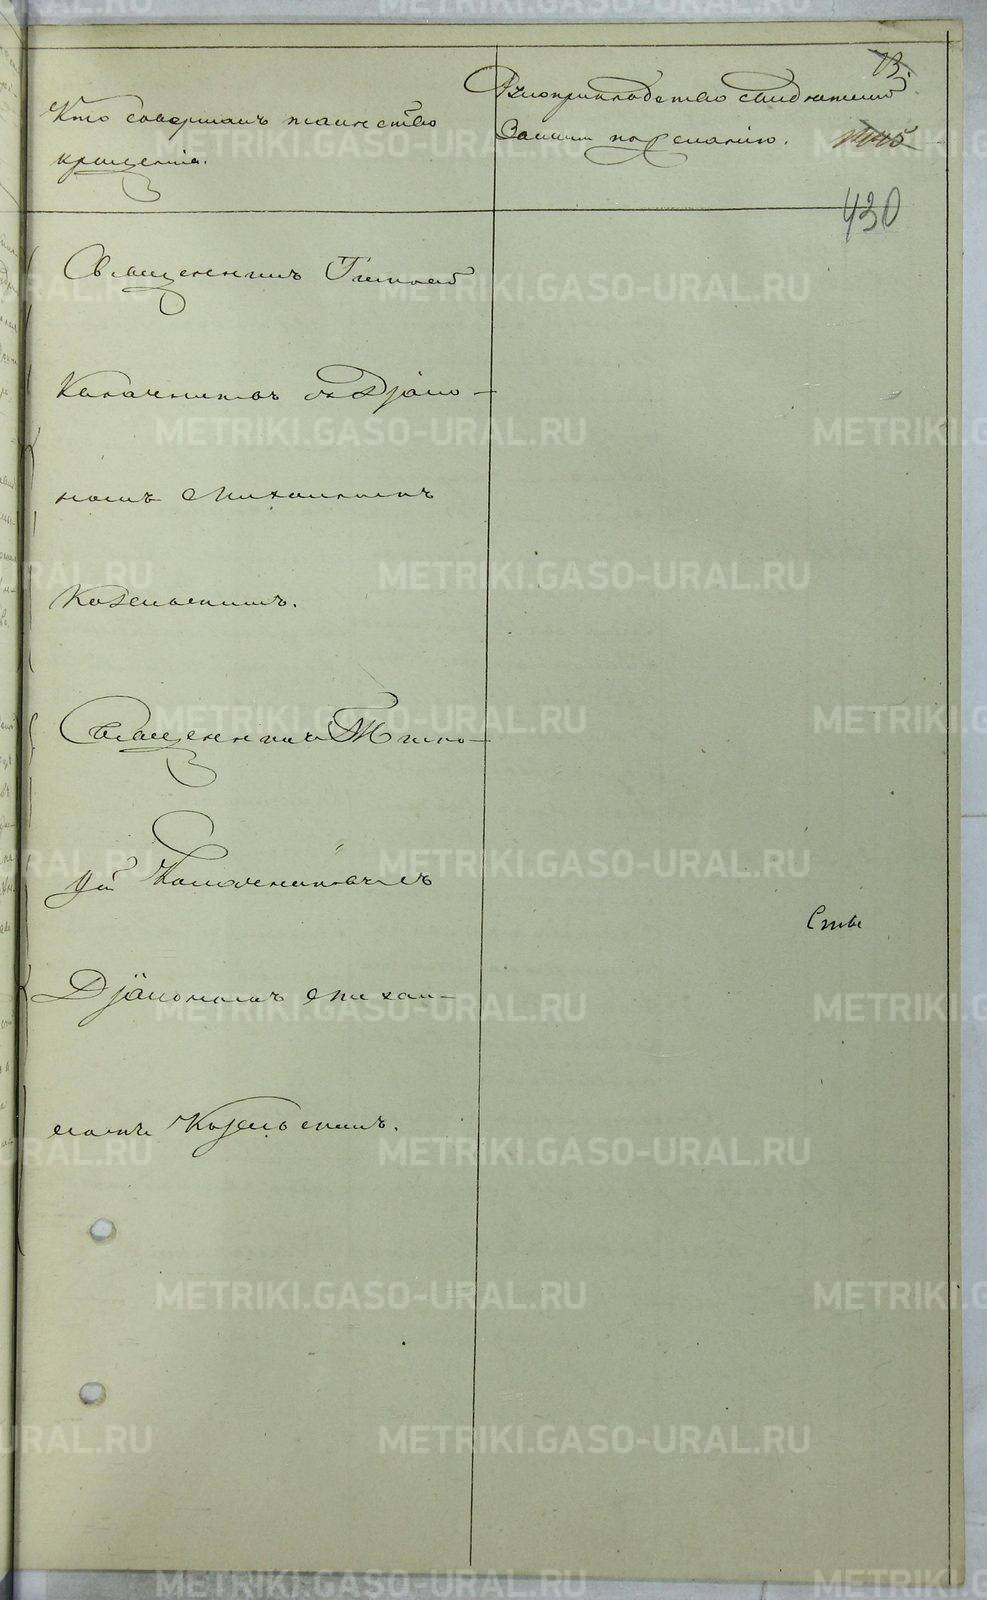 13.
Кто совершалъ таинство
крещенія.
Рукоприкладство свидѣтелей
записи по желанію.
430
Священникъ Тимофей
Калачниковъ съ Діако-
номъ Михаиломъ
Козельскимъ.
Священникъ Тимо-
фей Калачниковъ съ
Діакономъ Михаи-
ломъ Козельскимъ.
METRIKI.GASO-URAL.RU